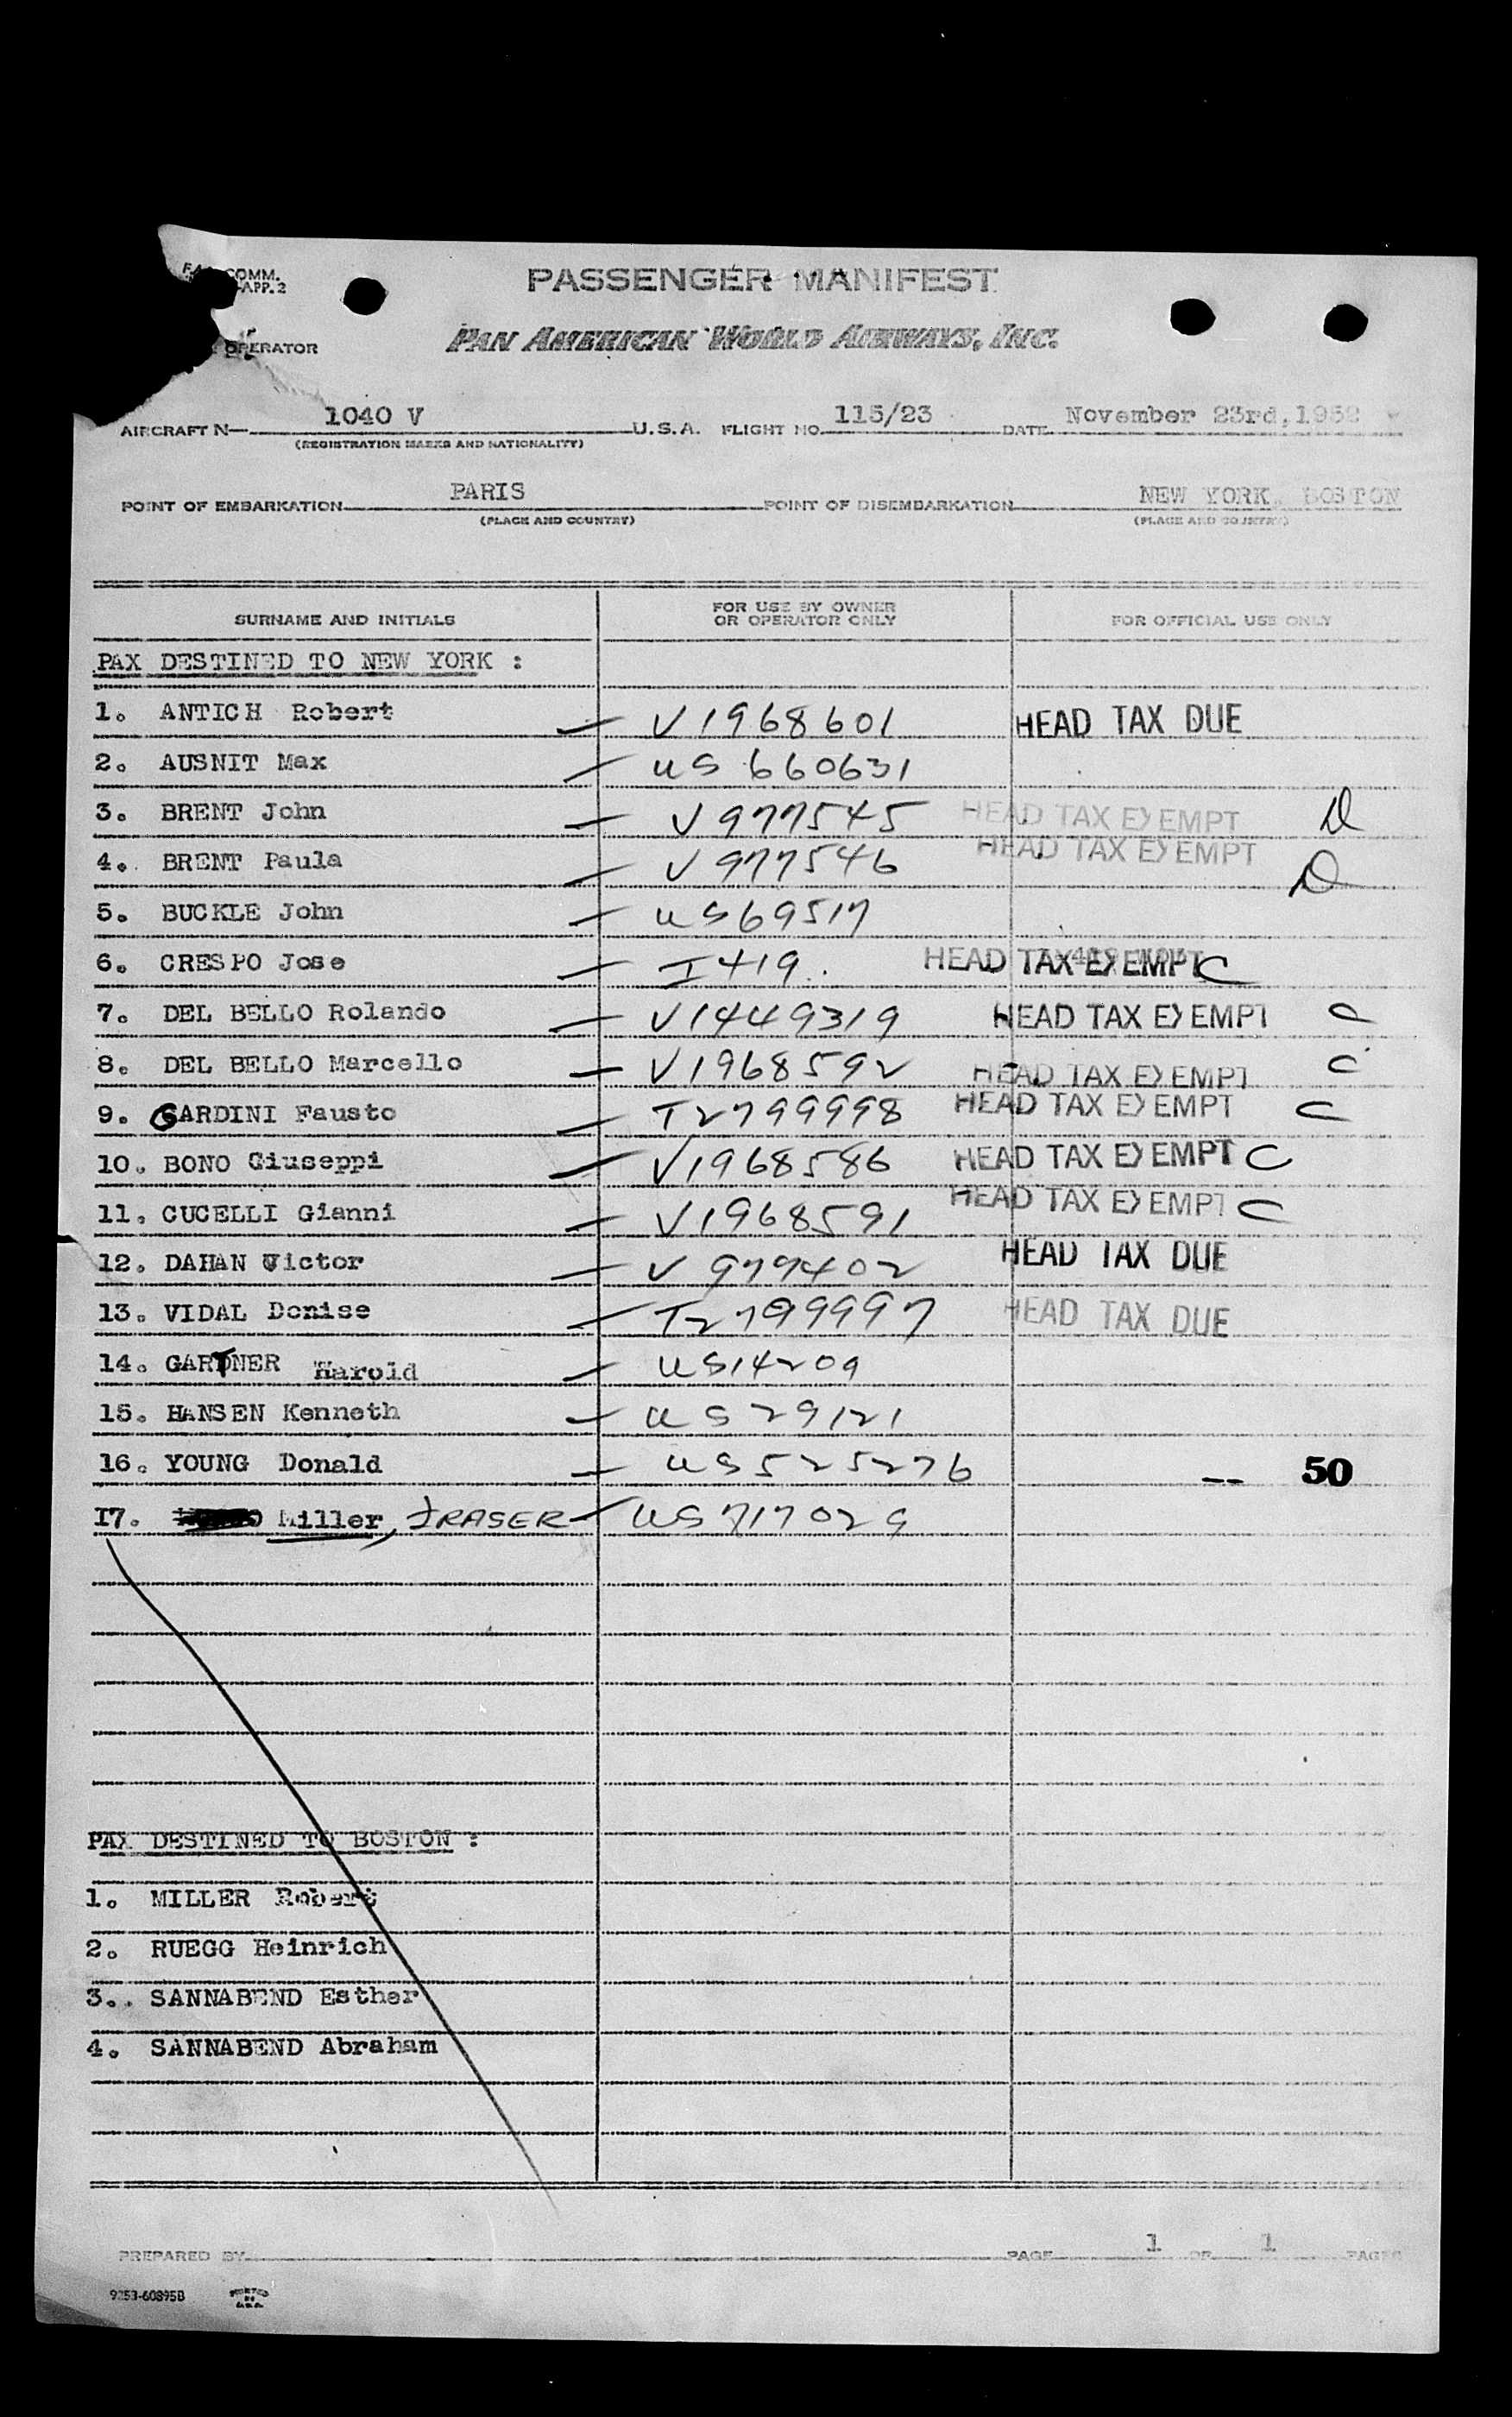 COMM.
APP. 2
PASSENGER MANIFEST
OPERATOR
PAN AMERICAN WORLD AIRWAYS, INC.
AIRCRAFT N— 1040 V U.S.A. FLIGHT NO. 115/23 DATE November 23rd, 1952
(REGISTRATION MARKS AND NATIONALITY)
POINT OF EMBARKATION PARIS POINT OF DISEMBARKATION NEW YORK, BOSTON
(PLACE AND COUNTRY) (PLACE AND COUNTRY)
SURNAME AND INITIALS FOR USE BY OWNER OR OPERATOR ONLY FOR OFFICIAL USE ONLY
PAX DESTINED TO NEW YORK :
1. ANTICH Robert — V1968601 HEAD TAX DUE
2. AUSNIT Max — US 660631
3. BRENT John — V977545 HEAD TAX EXEMPT D
4. BRENT Paula — V977546 HEAD TAX EXEMPT D
5. BUCKLE John — US69517
6. CRESPO Jose — I419. HEAD TAX EXEMPT C
7. DEL BELLO Rolando — V1449319 HEAD TAX EXEMPT C
8. DEL BELLO Marcello — V1968592 HEAD TAX EXEMPT C
9. GARDINI Fausto — T2799998 HEAD TAX EXEMPT C
10. BONO Giuseppi — V1968586 HEAD TAX EXEMPT C
11. CUCELLI Gianni — V1968591 HEAD TAX EXEMPT C
12. DAHAN Victor — V 979402 HEAD TAX DUE
13. VIDAL Denise — T2799997 HEAD TAX DUE
14. GARTNER Harold — US14209
15. HANSEN Kenneth — US29121
16. YOUNG Donald — US525276 -- 50
17. Miller, FRASER — US717029
PAX DESTINED TO BOSTON :
1. MILLER Robert
2. RUEGG Heinrich
3.. SANNABEND Esther
4. SANNABEND Abraham
PREPARED BY PAGE 1 OF 1 PAGES
9253-60895B PRINTED IN U.S.A.